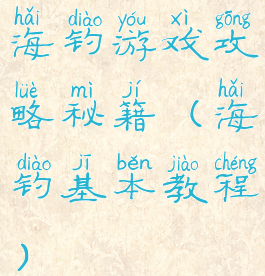 hǎi diào yóu xì gōng
海钓游戏攻
lüè mì jí hǎi
略秘籍（海
diào jī běn jiào chéng
钓基本教程
）